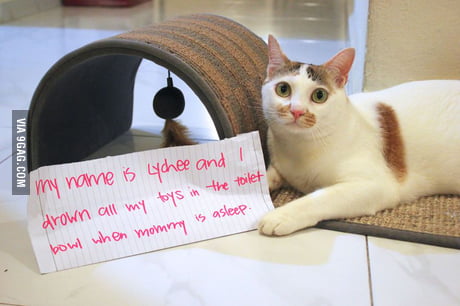 my name is Lychee and I
drown all my toys in the toilet
bowl when mommy is asleep.
VIA 9GAG.COM